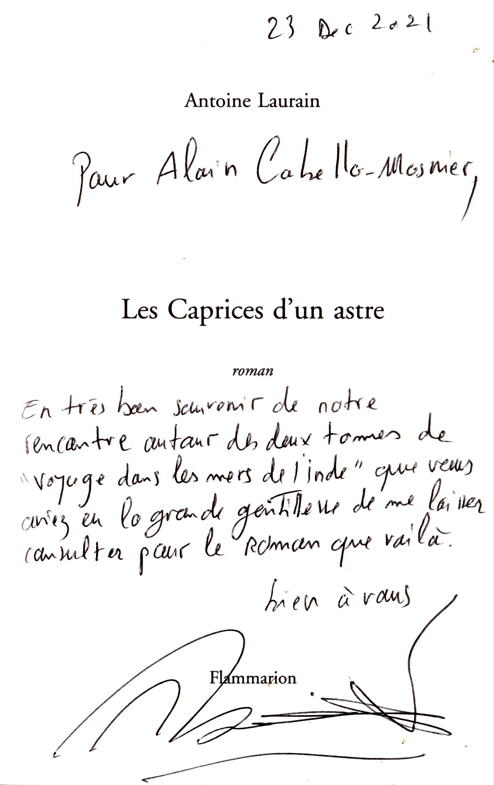 23 Dec 2021
Antoine Laurain
Pour Alain Cabello-Mosnier,
Les Caprices d'un astre
roman
En très bon souvenir de notre
rencontre autour des deux tomes de
"voyage dans les mers de l'inde" que vous
aviez eu la grande gentillesse de me laisser
consulter pour le roman que voilà.
bien à vous
Flammarion